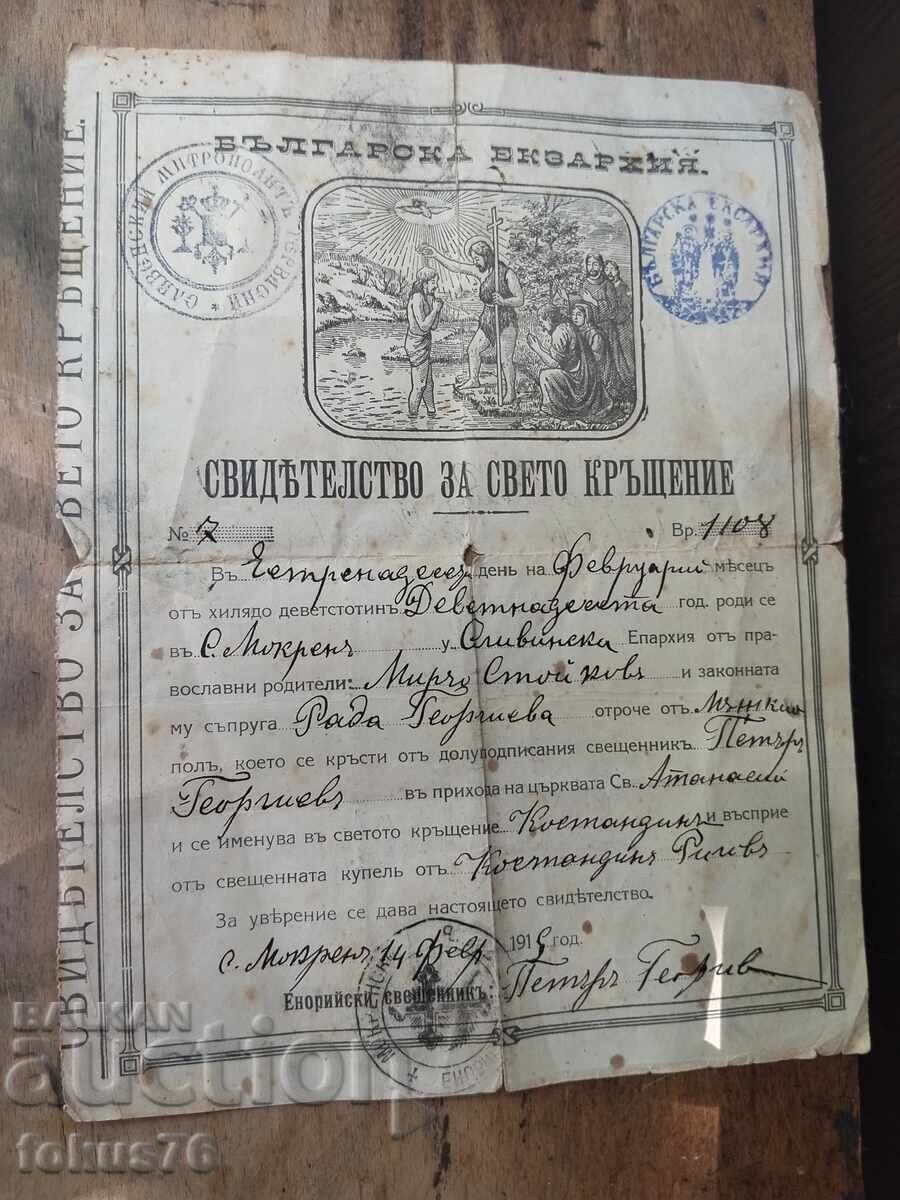 БЪЛГАРСКА ЕКЗАРХИЯ.
СЛИВЕНСКИЙ МИТРОПОЛИТЪ ГЕРВАСИЙ
БЪЛГАРСКА ЕКСАРХИЯ
СВИДѢТЕЛСТВО ЗА СВЕТО КРЪЩЕНИЕ
№ 7 Вр. 1108
Въ Четренадесе день на Февруарий мѣсецъ
отъ хилядо деветстотинъ Деветнадесета год. роди се
въ с. Мокренъ у Сливинска Епархия отъ пра-
вославни родители: Мирчо Стойковъ и законната
му съпруга Рада Георгиева отроче отъ Мъжкий
полъ, което се кръсти отъ долуподписания свещенникъ Петъръ
Георгиевъ въ прихода на църквата Св. Атанасий
и се именува въ светото кръщение Костандинъ и въсприе
отъ свещенната купель отъ Костандинъ
За увѣрение се дава настоящето свидѣтелство.
с. Мокренъ, 14 февр. 1919 год.
Енорийски свещенникъ: Петъръ Георгиев
СВИДѢТЕЛСТВО ЗА СВЕТО КРЪЩЕНИЕ.
BALKAN
auction
fokus76